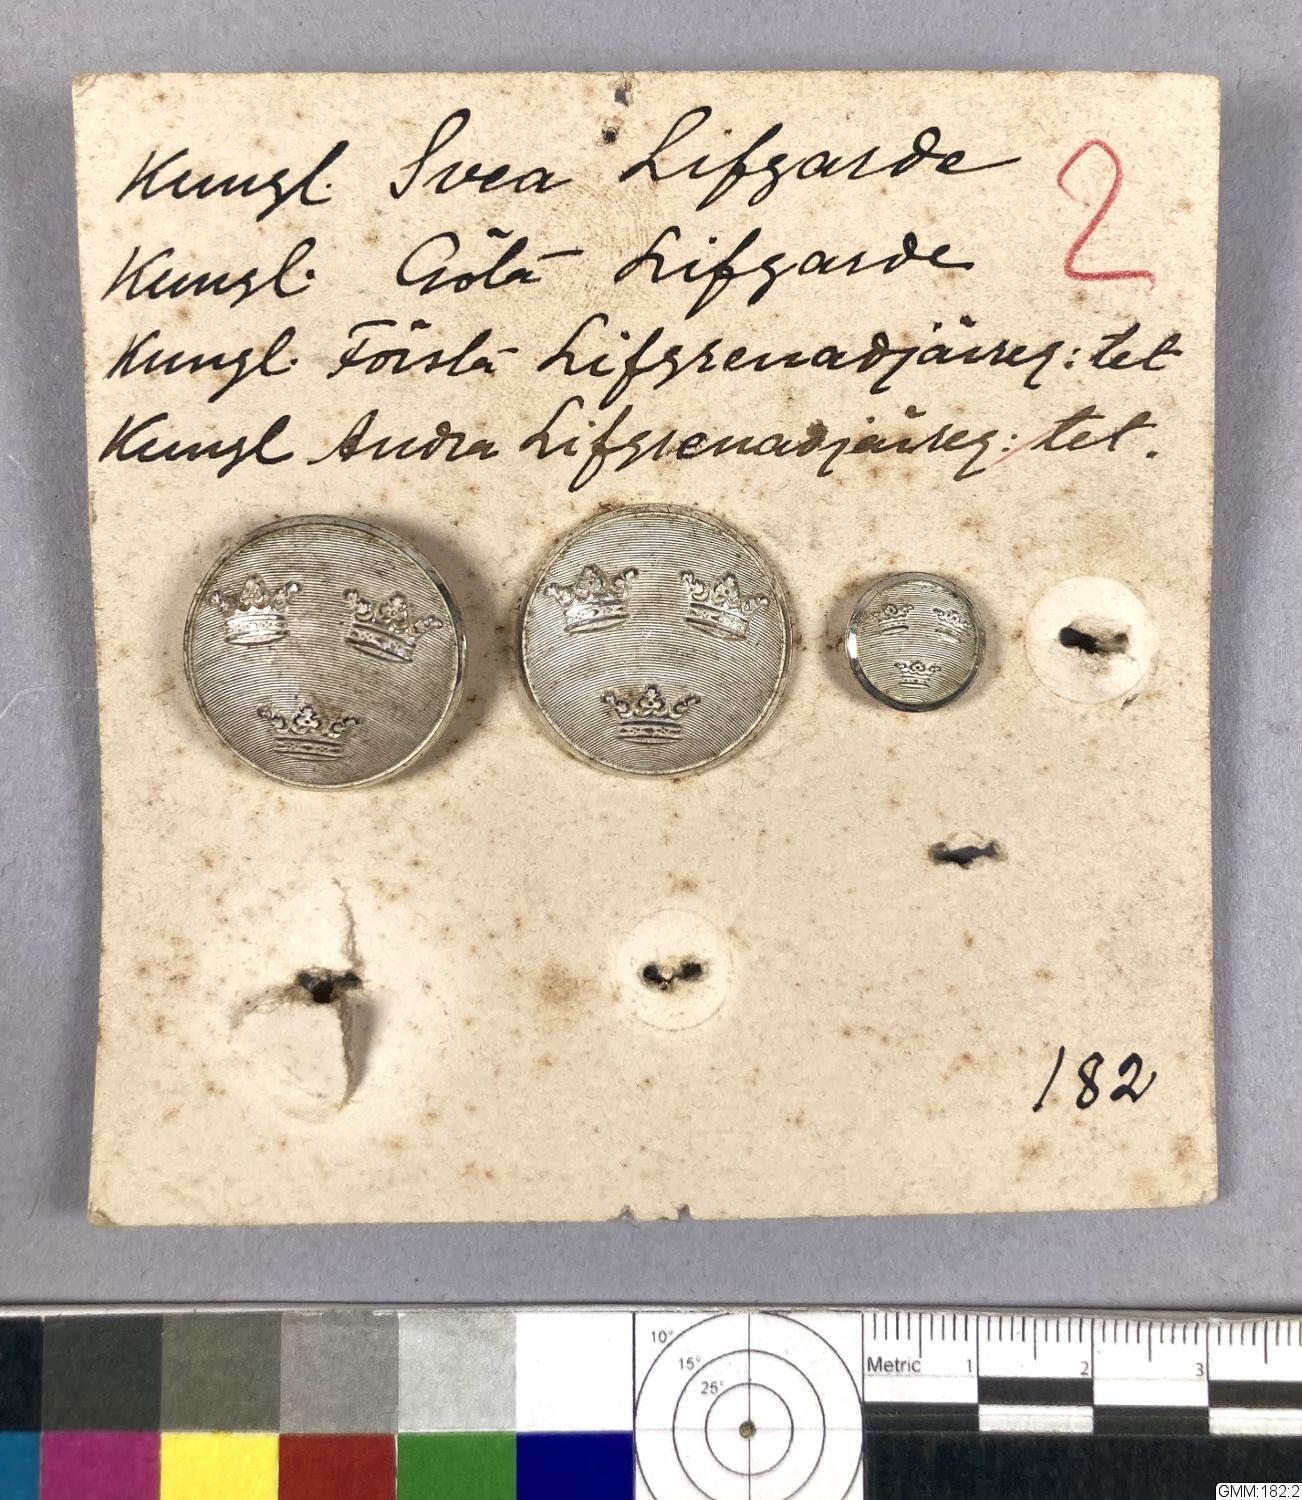 Kungl. Svea Lifgarde
2
Kungl. Göta Lifgarde
Kungl. Första Lifgrenadjärreg:tet
Kungl Andra Lifgrenadjärreg:tet.
182
10°
15°
25°
Metric 1 2 3
GMM:182:2